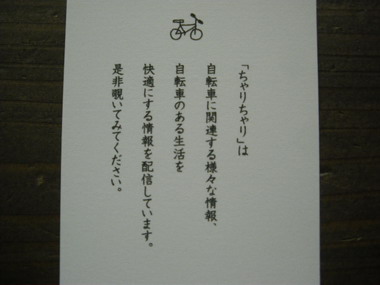 「ちゃりちゃり」は
自転車に関連する様々な情報、
自転車のある生活を
快適にする情報を配信しています。
是非覗いてみてください。